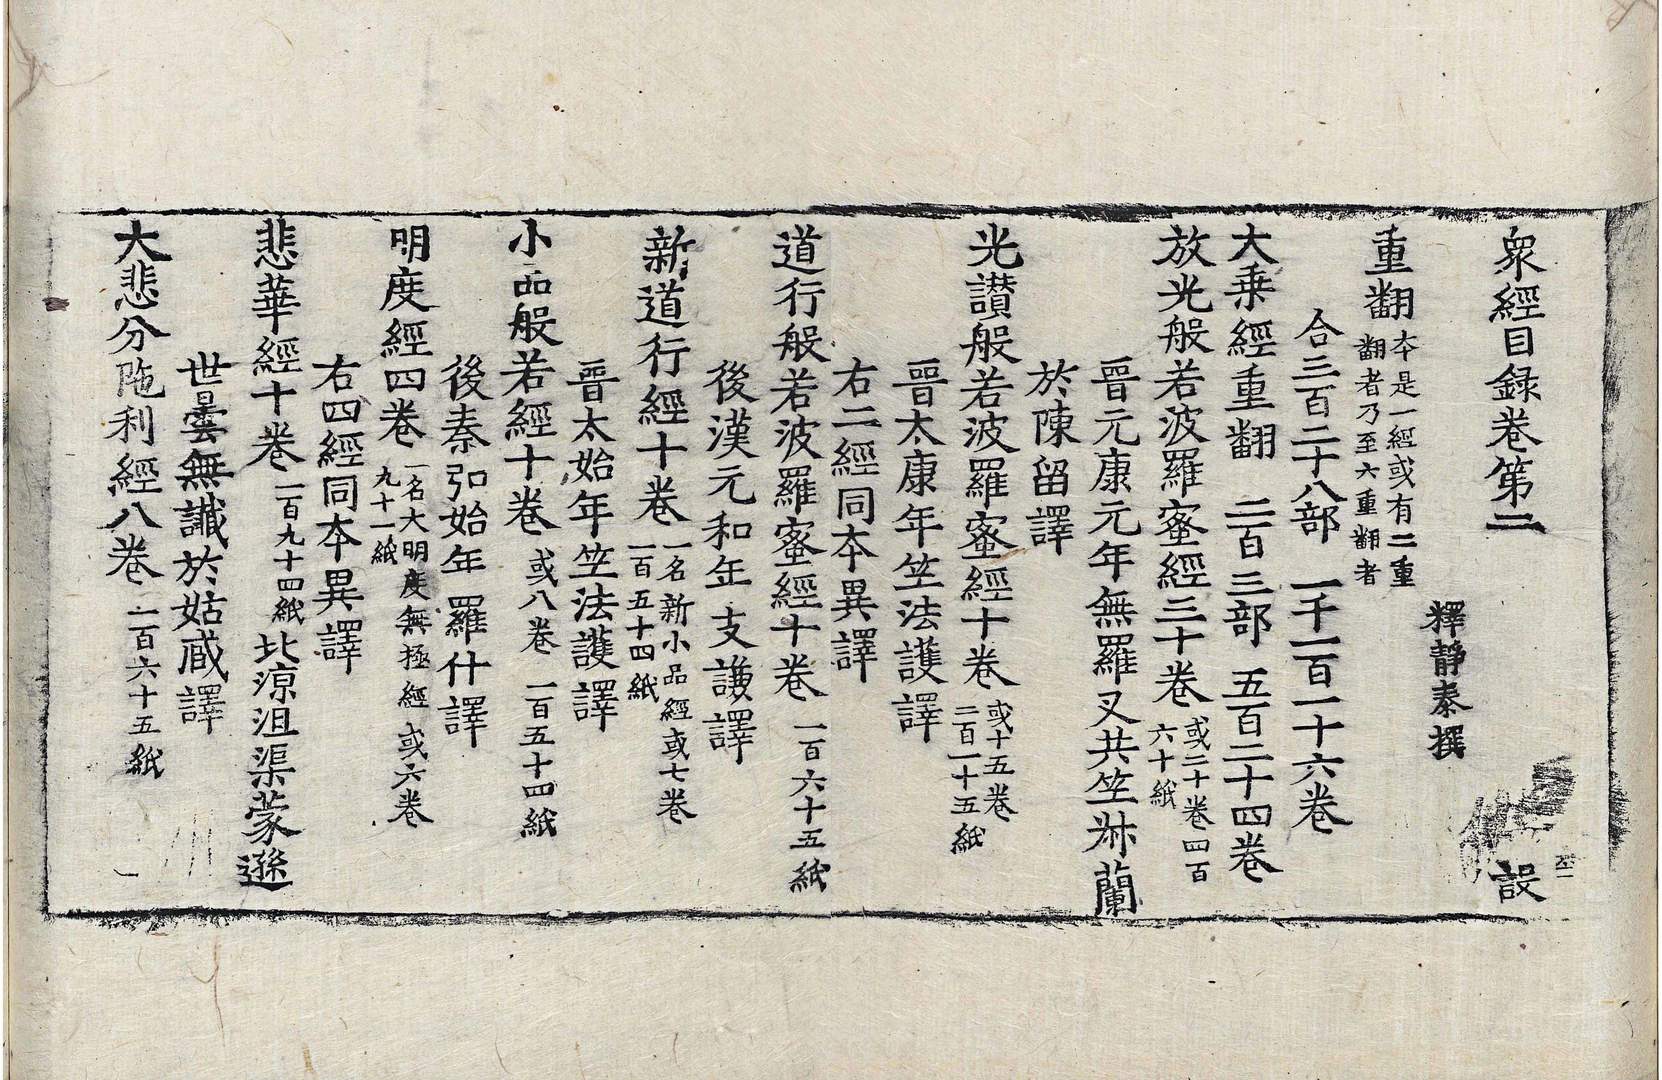 衆經目録卷第二 設
釋靜泰撰
重翻 本是一經或有二重翻者乃至六重翻者
合三百二十八部 一千一百一十六卷
大乗經重翻 二百三部 五百二十四卷
放光般若波羅蜜經三十卷 或二十卷四百六十紙
晉元康元年無羅叉共竺𠦑蘭
於陳留譯
光讃般若波羅蜜經十卷 或十五卷二百一十五紙
晉太康年竺法護譯
右二經同本異譯
道行般若波羅蜜經十卷 一百六十五紙
後漢元和年支謙譯
新道行經十卷 一名新小品經或七卷一百五十四紙
晉太始年竺法護譯
小品般若經十卷 或八卷 一百五十四紙
後秦弘始年羅什譯
明度經四卷 一名大明度無極經 或六卷九十一紙
右四經同本異譯
悲華經十卷 一百九十四紙 北涼沮渠蒙遜
世曇無讖於姑臧譯
大悲分陁利經八卷 一百六十五紙